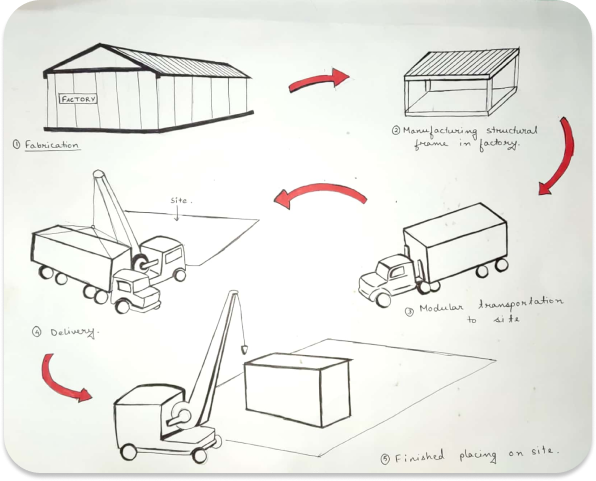 FACTORY
① Fabrication
② Manufacturing structural
frame in factory.
site.
③ Modular transportation
to site
④ Delivery.
⑤ Finished placing on site.